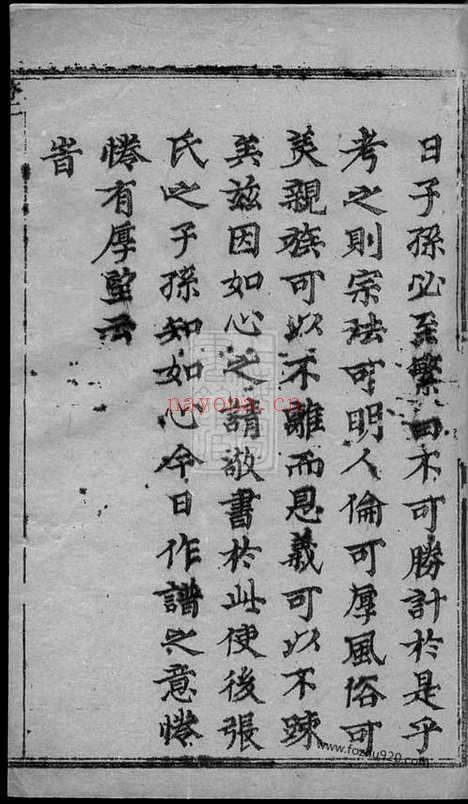 日子孫必至繁 不可勝計於是乎
考之則宗法可明人倫可厚風俗可
美親族可以不離而恩義可以不踈
矣兹因如心之請敬書於此使後張
氏之子孫知如心今日作譜之意惓
惓有厚望云
旹
nayona.cn
www.fozhu920.com